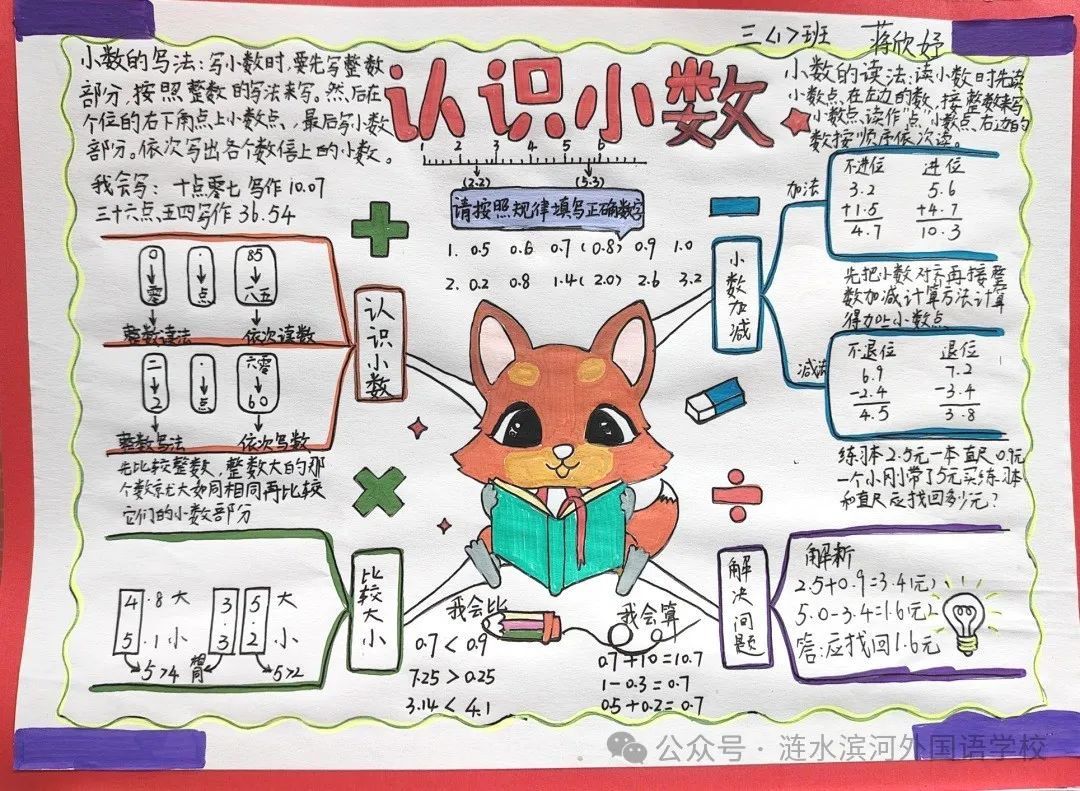 三<1>班 蒋欣妤
认识小数
小数的写法:写小数时,要先写整数
部分,按照整数的写法来写。然后在
个位的右下角点上小数点,最后写小数
部分。依次写出各个数位上的小数。
我会写: 十点零七 写作 10.07
三十六点五四写作 36.54
1 2 3 4 5 6
(2.2) (5.3)
请按照规律填写正确数字
1. 0.5 0.6 0.7 (0.8) 0.9 1.0
2. 0.2 0.8 1.4 (2.0) 2.6 3.2
小数的读法:读小数时先读
小数点在左边的数,按整数来写
小数点读作"点"小数点右边的
数按顺序依次读。
认识小数
0 . 85
零 点 八五
整数读法 依次读数
二 . 六零
2 点 60
整数写法 依次写数
先比较整数,整数大的那
个数就大如同相同再比较
它们的小数部分
比较大小
4 .8 大
5 .1 小
5>4
3 . 5 大
3 . 2 小
相同 5>2
我会比
0.7 < 0.9
7.25 > 0.25
3.14 < 4.1
小数加减
加法
不进位 进位
3.2 5.6
+1.5 +4.7
4.7 10.3
先把小数对齐再按整
数加减计算方法计算
得加上小数点
减法
不退位 退位
6.9 7.2
-2.4 -3.4
4.5 3.8
练习本2.5元一本直尺0.9元
一个小刚带了5元买练习本
和直尺应找回多少元?
解决问题
解析
2.5+0.9=3.4(元)
5.0-3.4=1.6(元)
答:应找回1.6元
我会算
0.7+10=10.7
1-0.3=0.7
0.5+0.2=0.7
公众号·涟水滨河外国语学校